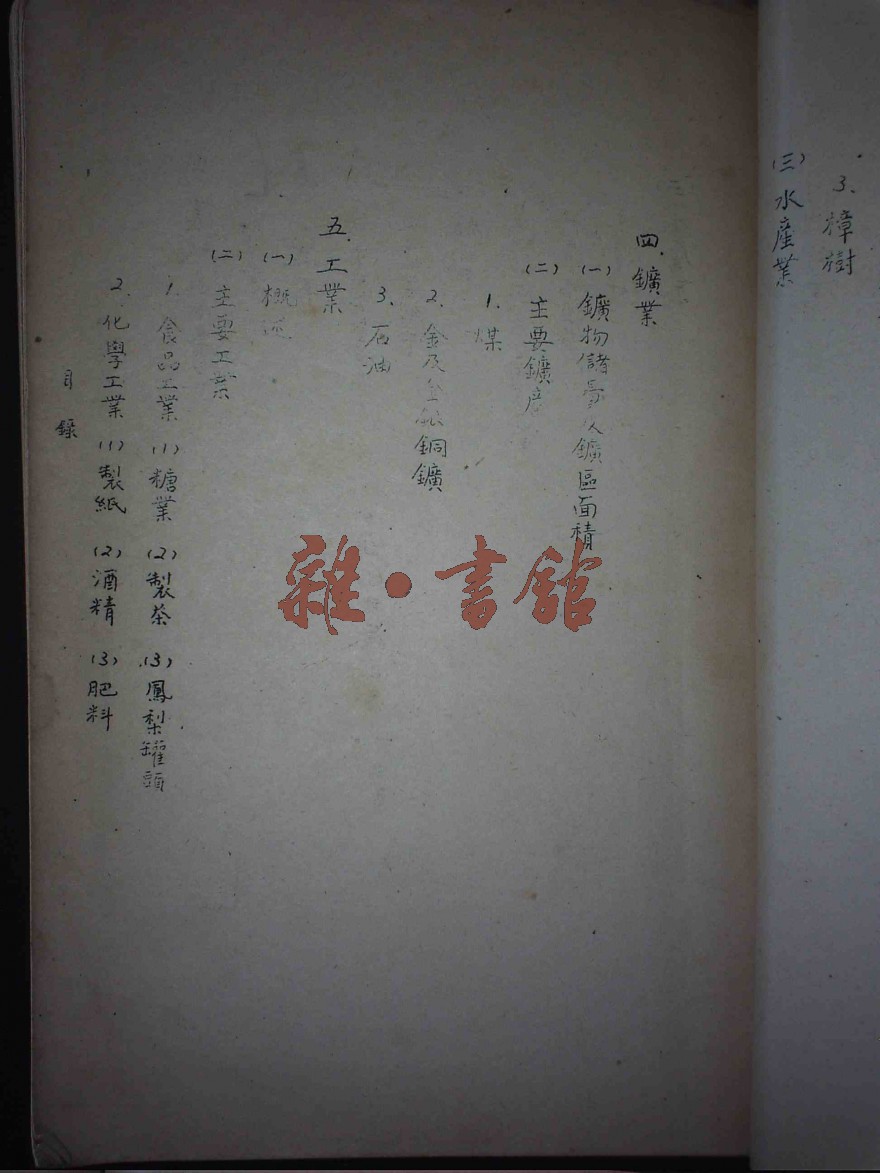 3、樟樹
(三)水產業
四、鑛業
(一)鑛物儲量及鑛區面積
(二)主要鑛產
1、煤
2、金及金銀銅鑛
3、石油
五、工業
(一)概述
(二)主要工業
1、食品工業 (1)糖業 (2)製茶 (3)鳳梨罐頭
2、化學工業 (1)製紙 (2)酒精 (3)肥料
目錄
雜·書館